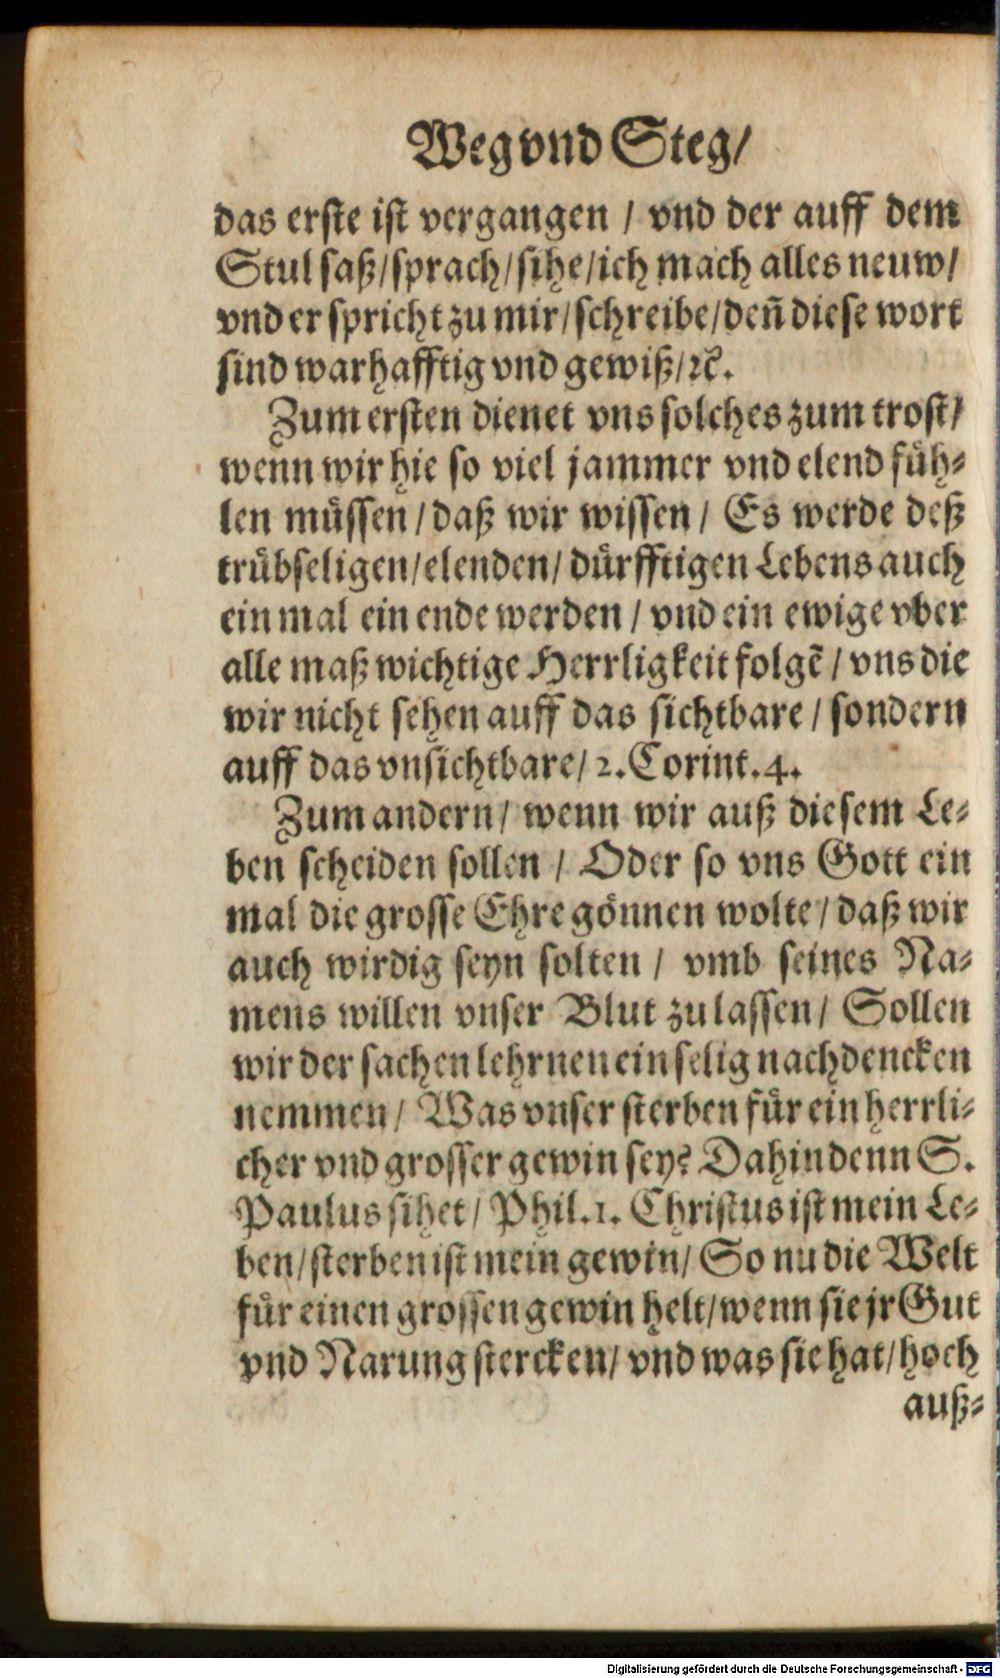 Weg vnd Steg/
das erste ist vergangen / vnd der auff dem
Stul saß/sprach/sihe/ich mach alles neuw/
vnd er spricht zu mir/schreibe/deñ diese wort
sind warhafftig vnd gewiß/ꝛc̃.
Zum ersten dienet vns solches zum trost/
wenn wir hie so viel jammer vnd elend füh-
len müssen/daß wir wissen/ Es werde deß
trübseligen/elenden/dürfftigen Lebens auch
ein mal ein ende werden / vnd ein ewige vber
alle maß wichtige Herrligkeit folgẽ / vns die
wir nicht sehen auff das sichtbare / sondern
auff das vnsichtbare/ 2.Corint.4.
Zum andern/ wenn wir auß diesem Le-
ben scheiden sollen / Oder so vns Gott ein
mal die grosse Ehre gönnen wolte/daß wir
auch wirdig seyn solten / vmb seines Na-
mens willen vnser Blut zu lassen/ Sollen
wir der sachen lehrnen ein selig nachdencken
nemmen/ Was vnser sterben für ein herrli-
cher vnd grosser gewin sey? Dahin denn S.
Paulus sihet/ Phil.1. Christus ist mein Le-
ben/sterben ist mein gewin/ So nu die Welt
für einen grossen gewin helt/wenn sie jr Gut
vnd Narung stercken/ vnd was sie hat/hoch
auß-
Digitalisierung gefördert durch die Deutsche Forschungsgemeinschaft - DFG